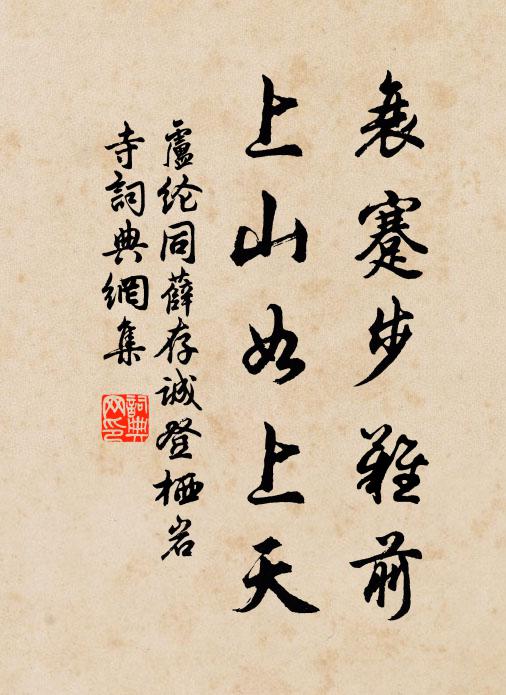 衰蹇步难前
上山如上天
盧纶同薛存诚登栖岩
寺詞典網集
詞典
网印